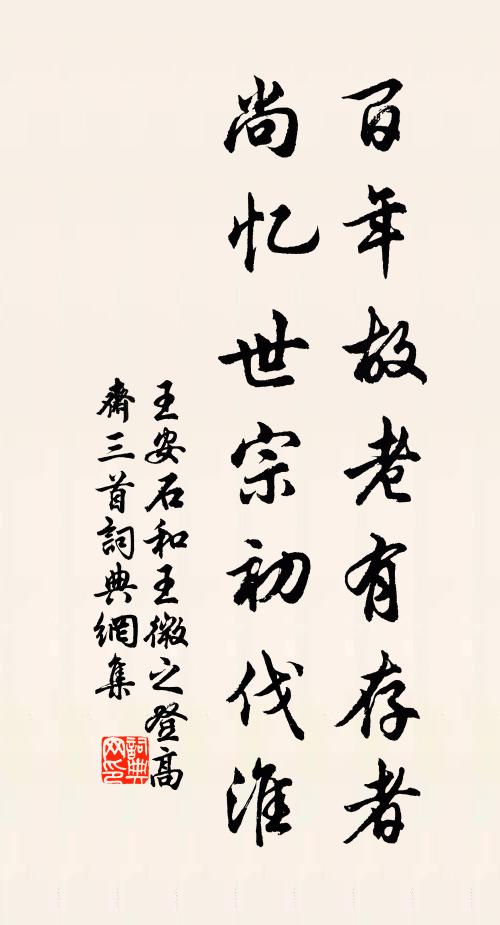 百年故老有存者
尚忆世宗初伐淮
王安石和王微之登高
齋三首詞典網集
詞典
网印